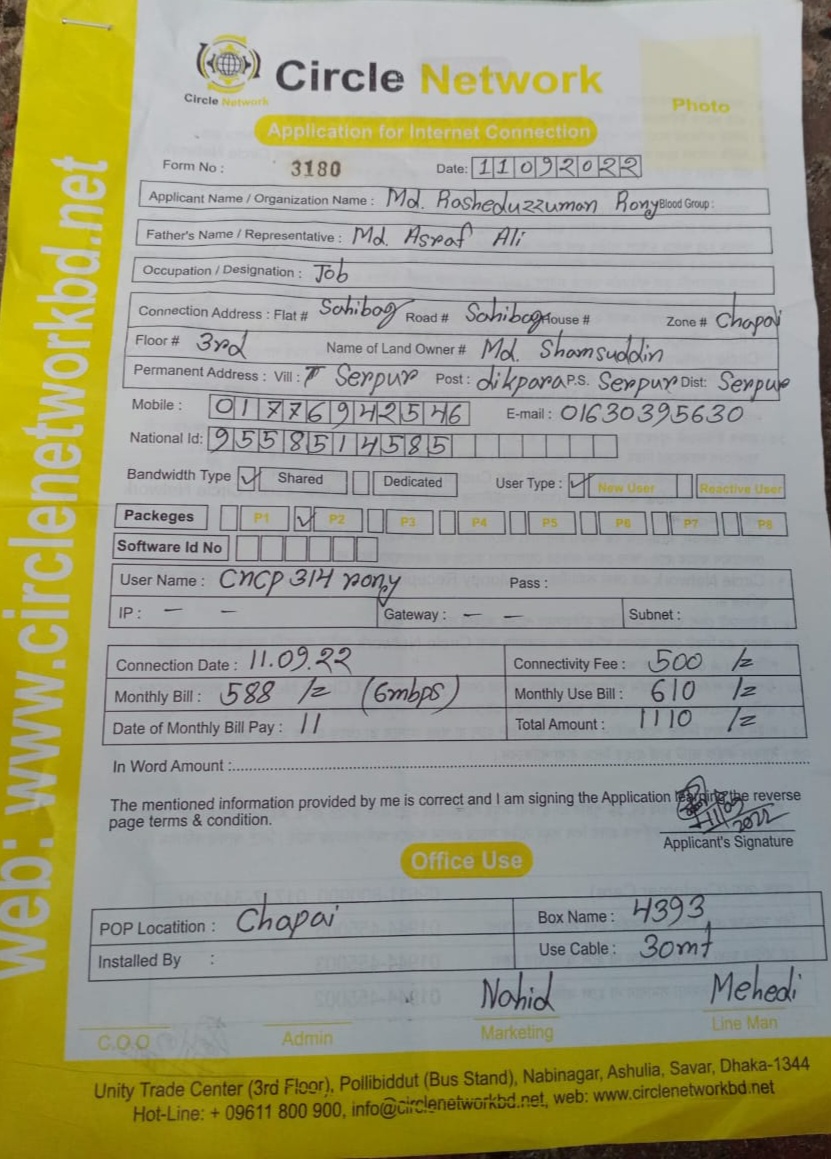 web: www.circlenetworkbd.net
Circle Network
Circle Network
Photo
Application for Internet Connection
Form No : 3180 Date: 11092022
Applicant Name / Organization Name : Md. Rasheduzzuman Rony Blood Group :
Father's Name / Representative : Md. Asraf Ali
Occupation / Designation : Job
Connection Address : Flat # Sahibag Road # Sahibag House # Zone # Chapai
Floor # 3rd Name of Land Owner # Md. Shamsuddin
Permanent Address : Vill : Serpur Post : dikpara P.S. Serpur Dist: Serpur
Mobile : 01776942546 E-mail : 01630395630
National Id: 9558514585
Bandwidth Type Shared Dedicated User Type : New User Reactive User
Packeges P1 P2 P3 P4 P5 P6 P7 P8
Software Id No
User Name : CNCP314 rony Pass :
IP : — — Gateway : — — Subnet :
Connection Date : 11.09.22 Connectivity Fee : 500 /=
Monthly Bill : 588 /= (6mbps) Monthly Use Bill : 610 /=
Date of Monthly Bill Pay : 11 Total Amount : 1110 /=
In Word Amount :
The mentioned information provided by me is correct and I am signing the Application the reverse
page terms & condition.
2022
Applicant's Signature
Office Use
POP Locatition : Chapai Box Name : 4393
Installed By : Use Cable : 30mt
Nahid Mehedi
C.O.O Admin Marketing Line Man
Unity Trade Center (3rd Floor), Pollibiddut (Bus Stand), Nabinagar, Ashulia, Savar, Dhaka-1344
Hot-Line: + 09611 800 900, info@circlenetworkbd.net, web: www.circlenetworkbd.net